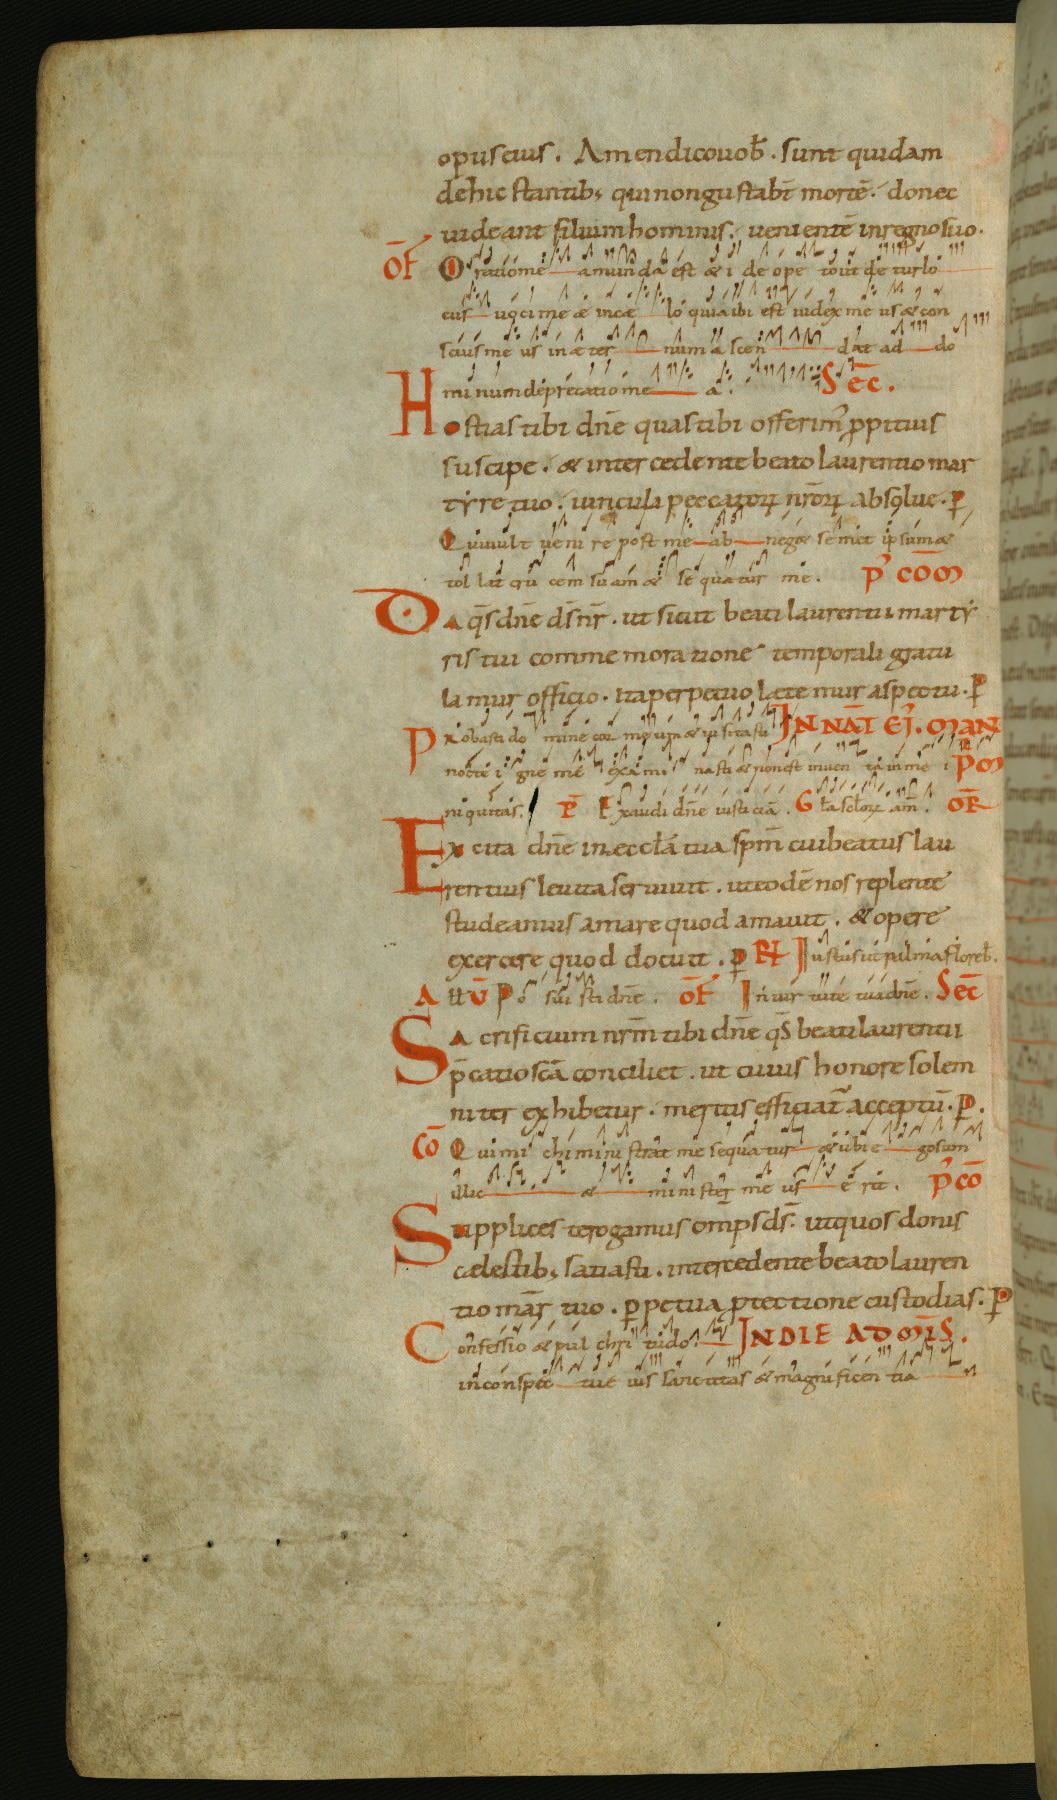 opus eius. Amen dico uob̄. sunt quidam
de hic stantib; qui non gustab̄t mortē. donec
uideant filium hominis. uenientē in regno suo.
OF̄ Oratio me amunda est & ideo pe tout detur lo
cus uoci meæ in cæ lo quia ibi est iudex meus & con
scius meus in æ ter num ascen dat ad do
minum deprecatio me a. Sec̄.
Hostias tibi dn̄e quas tibi offerim' ꝓpitius
suscipe. & intercedente beato laurentio mar
tyre tuo. uincula peccatoꝝ nr̄oꝝ absolue. ꝑ
Qui uult uenire post me ab neg& semet ipsum &
tol lat cru cem suam & sequatur me. P' COM̄
Da q̄s dn̄e ds̄ nr̄. ut sicut beati laurentii marty
ris tui commemoratione temporali gratu
lamur officio. ita perpetuo lætemur aspectu. P
Probasti domine cor meum & uisitasti IN NAT̄ EI'. MAN
nocte igne me examinasti & non est inuenta in me i P'M
niquitas. Ps̄ Exaudi dn̄e iusticiā. Gl̄a sc̄loꝝ am̄. OR̄
Excita dn̄e in æccl̄a tua sp̄m cui beatus lau
rentius leuita seruiuit. ut eodē nos replente
studeamus amare quod amauit. & opere
exercere quod docuit. ꝑ RŁ Iustus ut palma floreb̄.
All V̄ Posuisti dn̄e. OF̄ In uirtute tua dn̄e. Sec̄
Sacrificium nr̄m tibi dn̄e qs̄ beati laurentii
p̄catio sc̄a conciliet. ut cuius honore solem
niter exhibetur. meritis efficiat̄ acceptū. P.
CŌ Qui mi chi ministrat me sequatur & ubi ego sum
illic & minister meus erit. P'CŌ
Supplices te rogamus om̄ps ds̄. ut quos donis
cælestib; satiasti. intercedente beato lauren
tio mar̄ tuo. ꝑpetua ꝓtectione custodias. P
Confessio & pul chri tudo. IN DIE AD MIS̄.
in conspec tu eius sanctitas & magnificen tia